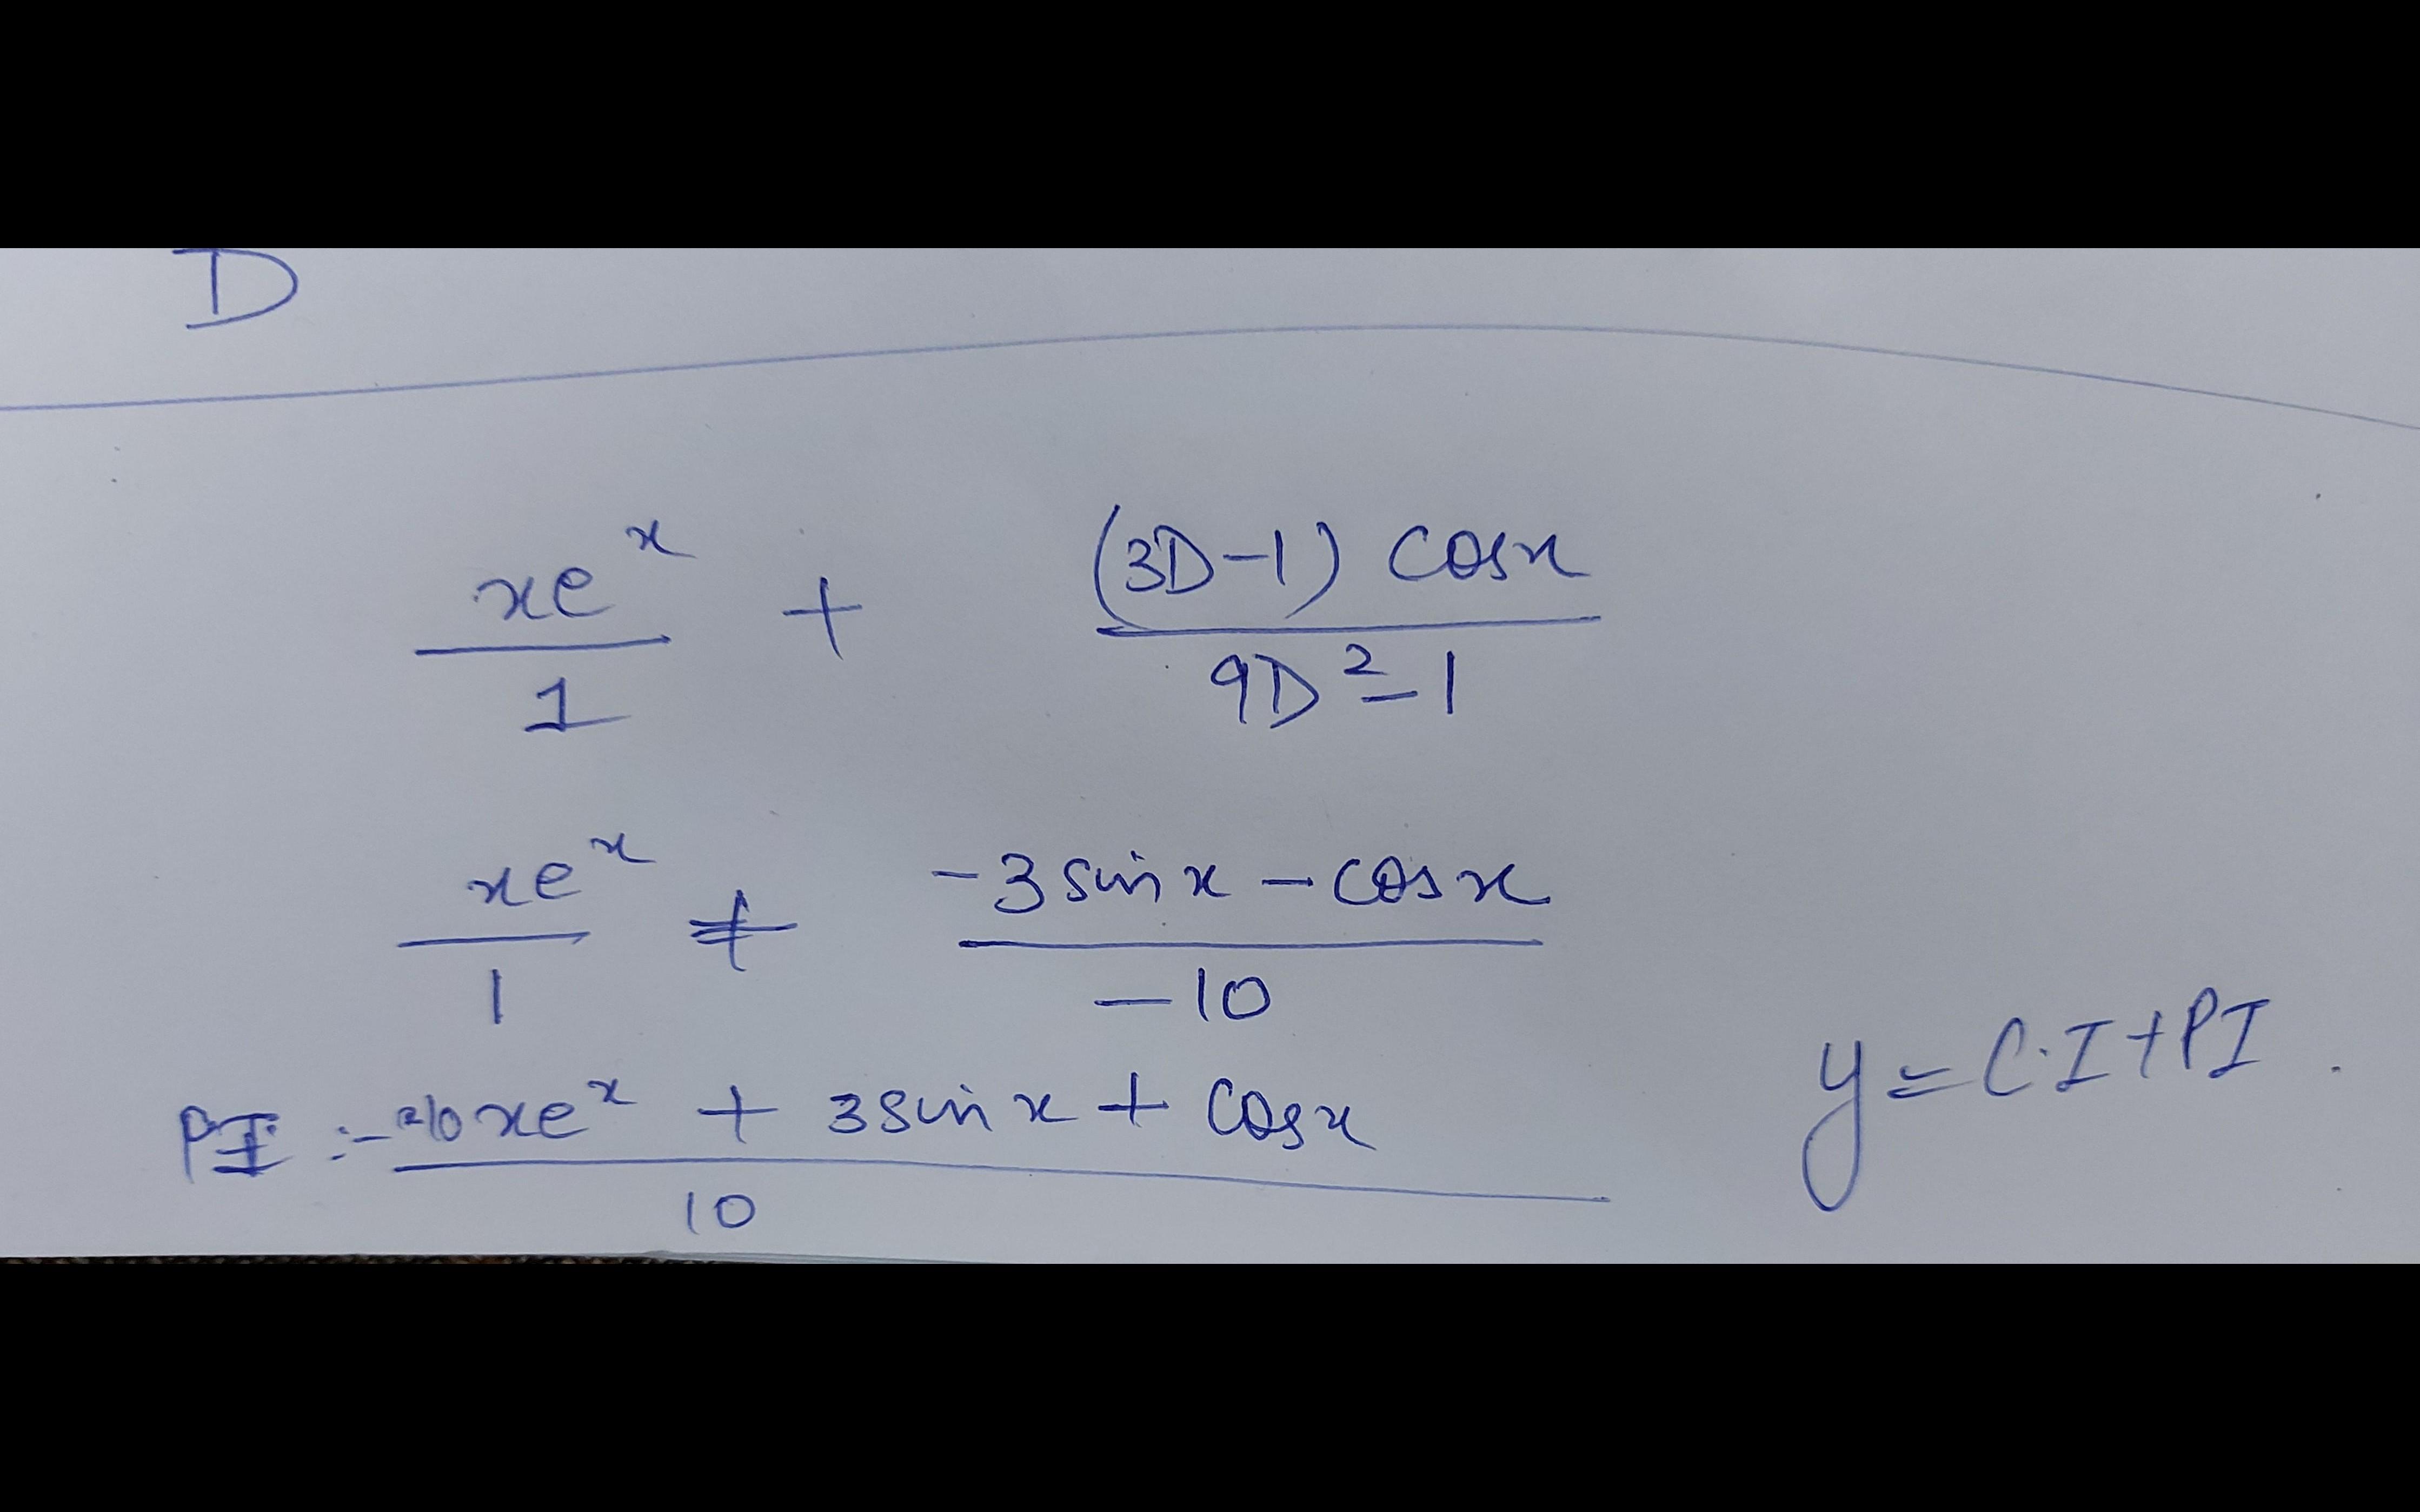 D
xe^x/1 + (3D-1) cosx/9D^2-1
xe^x/1 + -3 sin x - cosx/-10
PI :- 10xe^x + 3 sin x + cosx/10
y = C.I + PI.